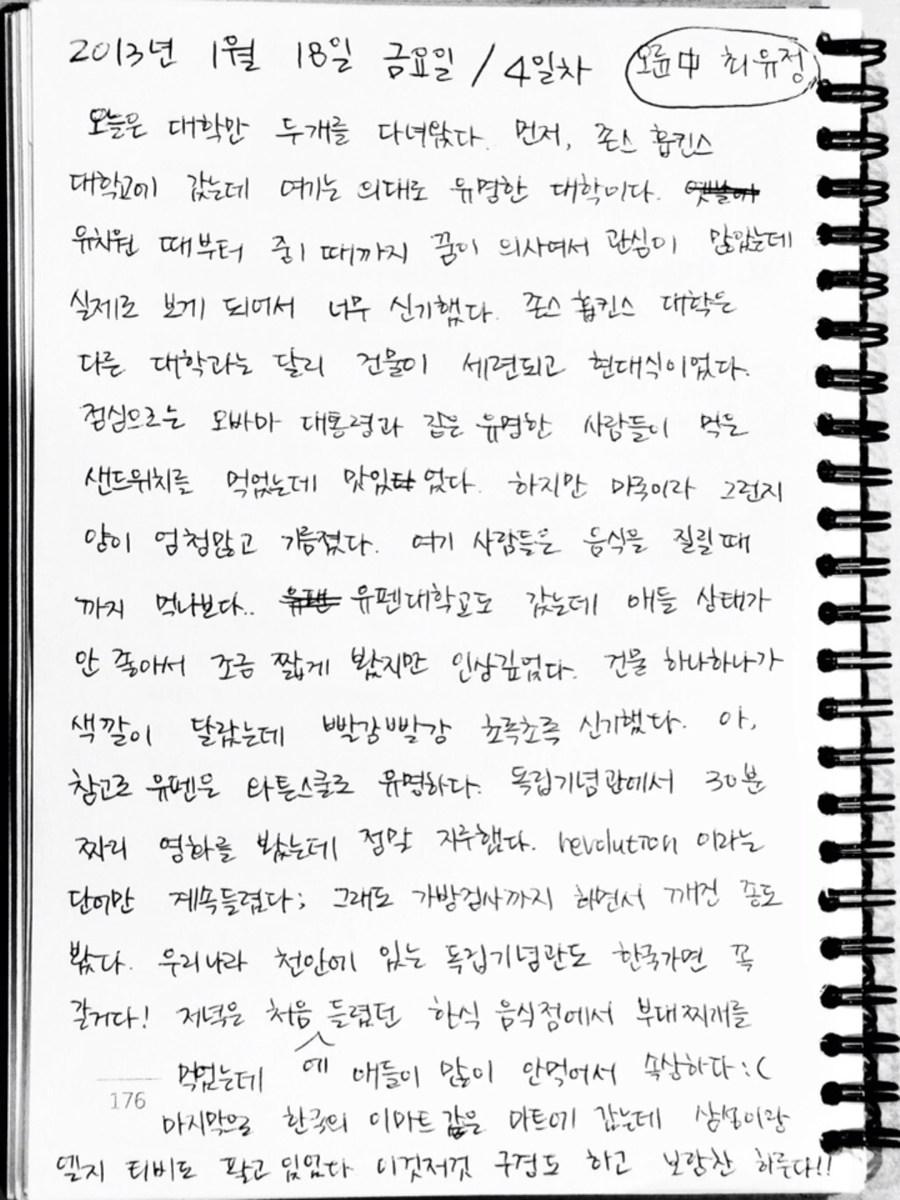 2013년 1월 18일 금요일 / 4일차 오륜中 최유정
오늘은 대학만 두개를 다녀왔다. 먼저, 존스 홉킨스
대학교에 갔는데 여기는 의대로 유명한 대학이다.
유치원 때부터 중1 때까지 꿈이 의사여서 관심이 많았는데
실제로 보게 되어서 너무 신기했다. 존스 홉킨스 대학은
다른 대학과는 달리 건물이 세련되고 현대식이었다.
점심으로는 오바마 대통령과 같은 유명한 사람들이 먹은
샌드위치를 먹었는데 맛있었다. 하지만 미국이라 그런지
양이 엄청많고 기름졌다. 여기 사람들은 음식을 질릴 때
까지 먹나보다.. 유펜대학교도 갔는데 애들 상태가
안 좋아서 조금 짧게 봤지만 인상깊었다. 건물 하나하나가
색깔이 달랐는데 빨강빨강 초록초록 신기했다. 아,
참고로 유펜은 와튼스쿨로 유명하다. 독립기념관에서 30분
짜리 영화를 봤는데 정말 지루했다. revolution 이라는
단어만 계속들렸다; 그래도 가방검사까지 하면서 깨진 종도
봤다. 우리나라 천안에 있는 독립기념관도 한국가면 꼭
갈거다! 저녁은 처음에 들렸던 한식 음식점에서 부대찌개를
먹었는데 애들이 많이 안먹어서 속상하다:(
176
마지막으로 한국의 이마트 같은 마트에 갔는데 삼성이랑
엘지 티비도 팔고 있었다 이것저것 구경도 하고 보람찬 하루다!!